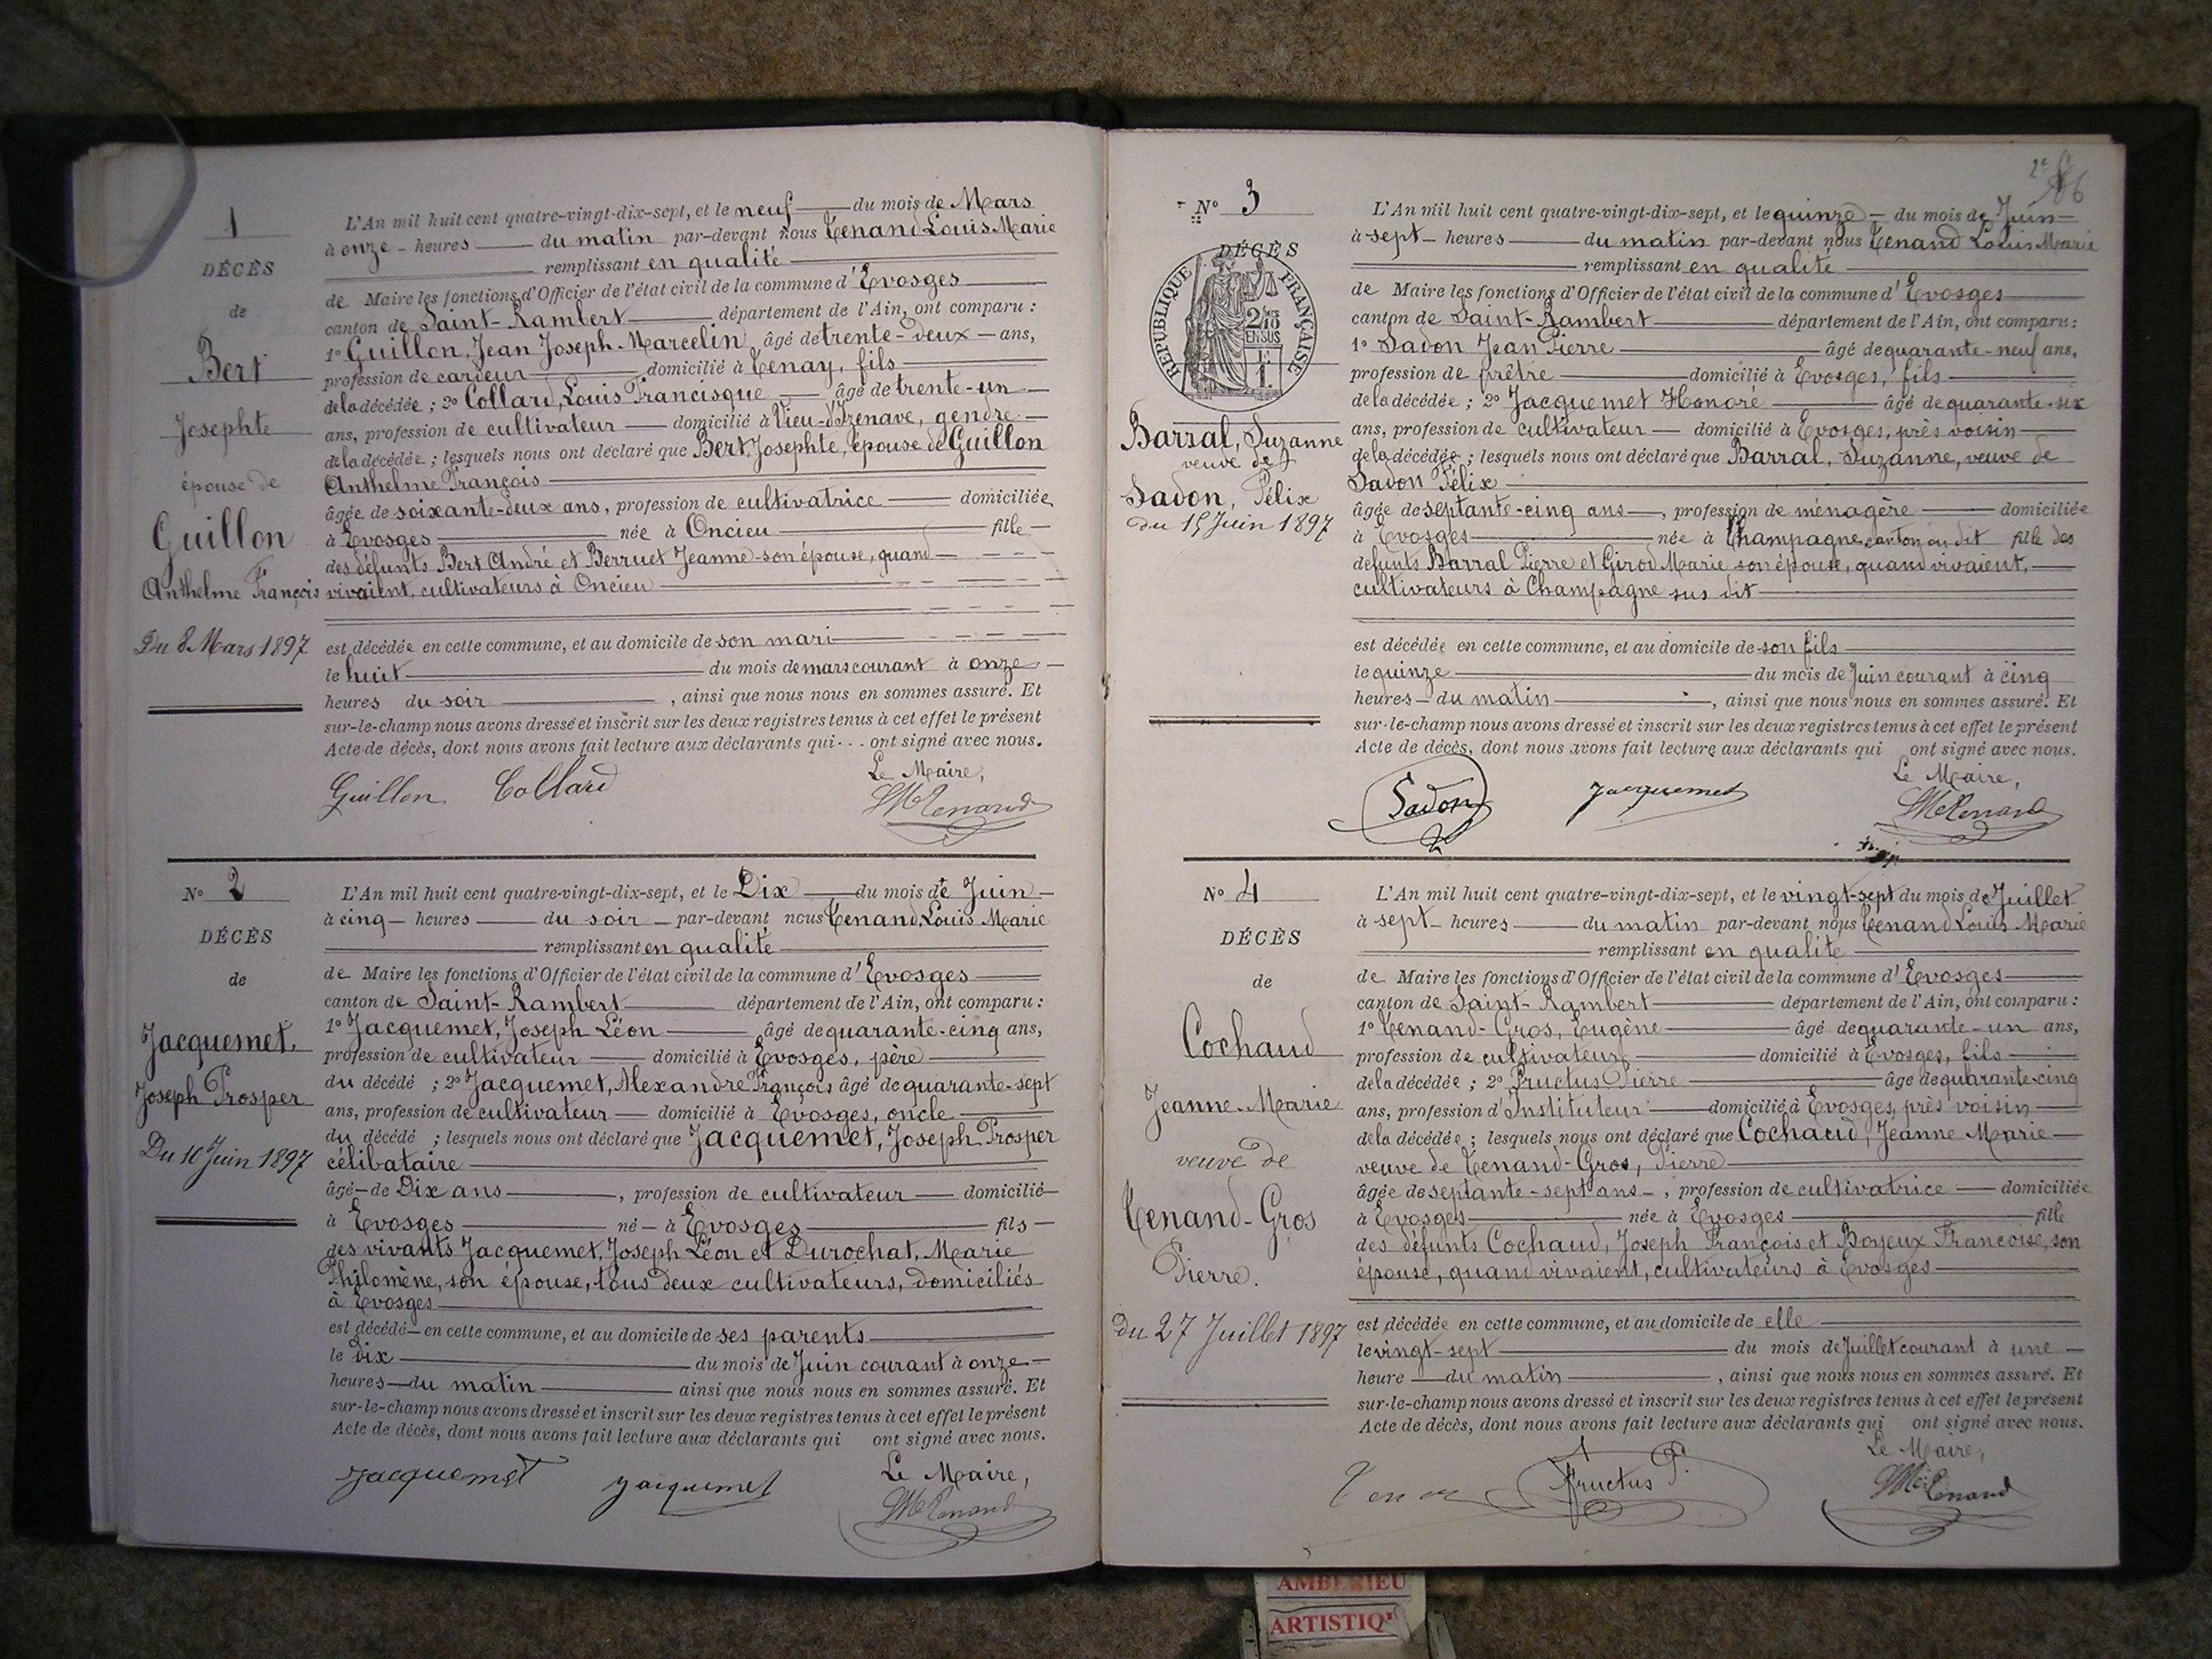 1
DÉCÈS
de
Bert
Josephte
épouse de
Guillon
Anthelme François
Du 8 Mars 1897
L'An mil huit cent quatre-vingt-dix-sept, et le neuf du mois de Mars
à onze - heures du matin par-devant nous Tenand Louis Marie
remplissant en qualité
de Maire les fonctions d'Officier de l'état civil de la commune d'Evosges
canton de Saint-Rambert département de l'Ain, ont comparu :
1° Guillon, Jean Joseph-Marcelin âgé de trente-deux - ans,
profession de cardeur domicilié à Tenay, fils
de la décédée ; 2° Collard, Louis Francisque âgé de trente-un
ans, profession de cultivateur domicilié à Vieu-d'Izenave, gendre
de la décédée ; lesquels nous ont déclaré que Bert, Josephte, épouse de Guillon
Anthelme François
âgée de soixante-deux ans, profession de cultivatrice domiciliée
à Evosges née à Oncieu fille
des défunts Bert André et Berruet Jeanne son épouse, quand
vivaient, cultivateurs à Oncieu
est décédée en cette commune, et au domicile de son mari
le huit du mois de mars courant à onze
heures du soir, ainsi que nous nous en sommes assuré. Et
sur-le-champ nous avons dressé et inscrit sur les deux registres tenus à cet effet le présent
Acte de décès, dont nous avons fait lecture aux déclarants qui ont signé avec nous.
Le Maire,
Guillon Collard LMTenand
N° 2
DÉCÈS
de
Jacquemet,
Joseph Prosper
Du 10 Juin 1897
L'An mil huit cent quatre-vingt-dix-sept, et le Dix du mois de Juin
à cinq - heures du soir par-devant nous Tenand, Louis Marie
remplissant en qualité
de Maire les fonctions d'Officier de l'état civil de la commune d'Evosges
canton de Saint-Rambert département de l'Ain, ont comparu :
1° Jacquemet, Joseph Léon âgé de quarante-cinq ans,
profession de cultivateur domicilié à Evosges, père
du décédé ; 2° Jacquemet, Alexandre François âgé de quarante-sept
ans, profession de cultivateur domicilié à Evosges, oncle
du décédé ; lesquels nous ont déclaré que Jacquemet, Joseph Prosper
célibataire
âgé de Dix ans, profession de cultivateur domicilié
à Evosges né à Evosges fils
des vivants Jacquemet, Joseph Léon et Durochat, Marie
Philomène, son épouse, tous deux cultivateurs, domiciliés
à Evosges
est décédé en cette commune, et au domicile de ses parents
le Dix du mois de Juin courant à onze
heures du matin ainsi que nous nous en sommes assuré. Et
sur-le-champ nous avons dressé et inscrit sur les deux registres tenus à cet effet le présent
Acte de décès, dont nous avons fait lecture aux déclarants qui ont signé avec nous.
Le Maire,
Jacquemet Jacquemet LMTenand
2e
N° 3
DÉCÈS
REPUBLIQUE FRANÇAISE
2/10 EN SUS
Barral, Suzanne
veuve de
Sadon, Félix
du 15 Juin 1897
L'An mil huit cent quatre-vingt-dix-sept, et le quinze du mois de Juin
à sept - heures du matin par-devant nous Tenand Louis Marie
remplissant en qualité
de Maire les fonctions d'Officier de l'état civil de la commune d'Evosges
canton de Saint-Rambert département de l'Ain, ont comparu :
1° Sadon Jean Pierre âgé de quarante-neuf ans,
profession de prêtre domicilié à Evosges, fils
de la décédée ; 2° Jacquemet Honoré âgé de quarante-six
ans, profession de cultivateur domicilié à Evosges, près voisin
de la décédée ; lesquels nous ont déclaré que Barral, Suzanne, veuve de
Sadon Félix
âgée de septante-cinq ans, profession de ménagère domiciliée
à Evosges née à Champagne, canton du dit fille des
défunts Barral Pierre et Girod Marie son épouse, quand vivaient,
cultivateurs à Champagne sus dit
est décédée en cette commune, et au domicile de son fils
le quinze du mois de Juin courant à cinq
heures du matin, ainsi que nous nous en sommes assuré. Et
sur-le-champ nous avons dressé et inscrit sur les deux registres tenus à cet effet le présent
Acte de décès, dont nous avons fait lecture aux déclarants qui ont signé avec nous.
Le Maire,
Sadon Jacquemet LMTenand
N° 4
DÉCÈS
de
Cochaud
Jeanne-Marie
veuve de
Tenand-Gros
Pierre.
Du 27 Juillet 1897
L'An mil huit cent quatre-vingt-dix-sept, et le vingt-sept du mois de Juillet
à sept - heures du matin par-devant nous Tenand Louis Marie
remplissant en qualité
de Maire les fonctions d'Officier de l'état civil de la commune d'Evosges
canton de Saint-Rambert département de l'Ain, ont comparu :
1° Tenand-Gros, Eugène âgé de quarante-un ans,
profession de cultivateur domicilié à Evosges, fils
de la décédée ; 2° Fructus Pierre âgé de quarante-cinq
ans, profession d'Instituteur domicilié à Evosges, près voisin
de la décédée ; lesquels nous ont déclaré que Cochaud, Jeanne Marie
veuve de Tenand-Gros, Pierre
âgée de septante-sept ans, profession de cultivatrice domiciliée
à Evosges née à Evosges fille
des défunts Cochaud, Joseph François et Boyeux Françoise, son
épouse, quand vivaient, cultivateurs à Evosges
est décédée en cette commune, et au domicile de elle
le vingt-sept du mois de Juillet courant à une
heure du matin, ainsi que nous nous en sommes assuré. Et
sur-le-champ nous avons dressé et inscrit sur les deux registres tenus à cet effet le présent
Acte de décès, dont nous avons fait lecture aux déclarants qui ont signé avec nous.
Le Maire,
Fructus P. LMTenand
AMBERIEU
ARTISTIQ